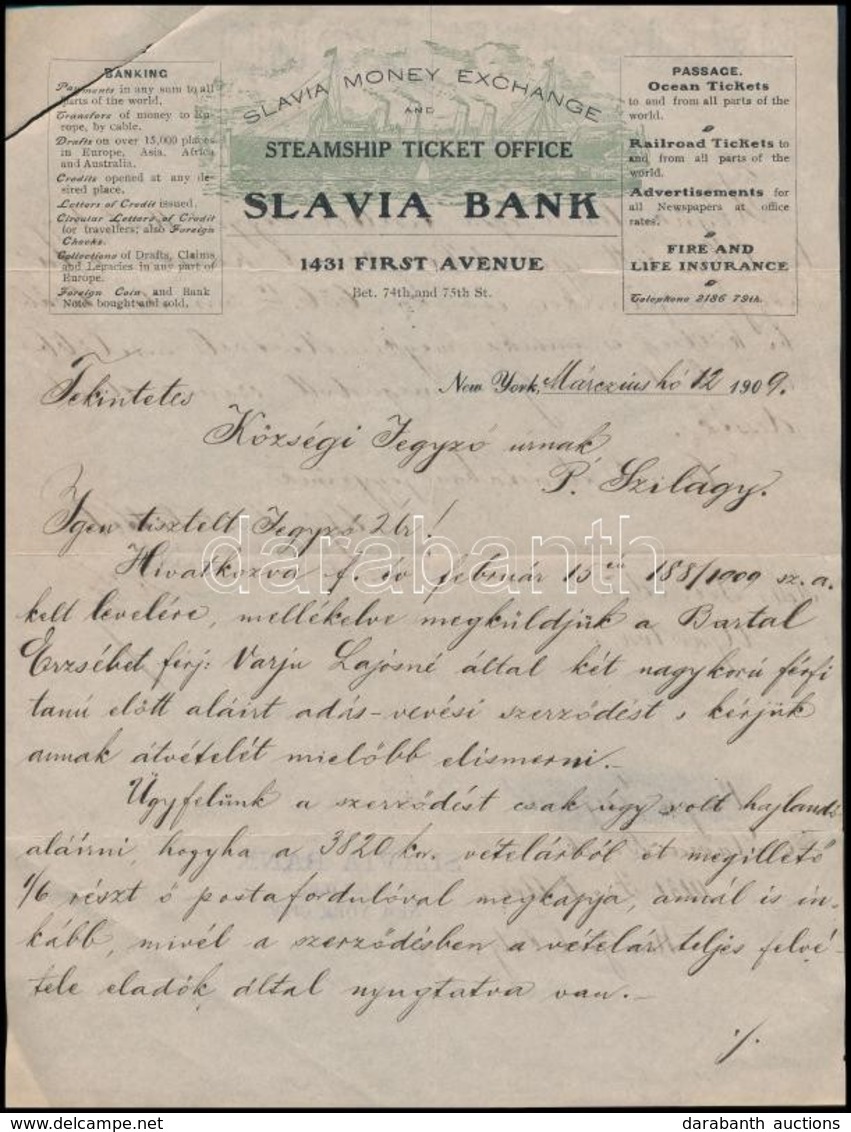 BANKING
Payments in any sum to all
parts of the world.
Transfers of money to Eu-
rope, by cable.
Drafts on over 15,000 places
in Europe, Asia, Africa
and Australia.
Credits opened at any de-
sired place.
Letters of Credit issued.
Circular Letters of Credit
for travellers; also Foreign
Checks.
Collections of Drafts, Claims
and Legacies in any part of
Europe.
Foreign Coin and Bank
Notes bought and sold.
SLAVIA MONEY EXCHANGE
AND
STEAMSHIP TICKET OFFICE
SLAVIA BANK
1431 FIRST AVENUE
Bet. 74th and 75th St.
PASSAGE.
Ocean Tickets
to and from all parts of the
world.
Railroad Tickets to
and from all parts of the
world.
Advertisements for
all Newspapers at office
rates.
FIRE AND
LIFE INSURANCE
Telephone 2186 79th.
New York, Márczius hó 12 1909.
Tekintetes
Községi Jegyző urnak
P. Szilágy.
Igen tisztelt Jegyző Úr!
Hivatkozva f. év február 15 én 188/1909 sz. a.
kelt levelére, mellékelve megküldjük a Bartal
Erzsébet férj: Varju Lajosné által két nagykorú férfi
tanú előtt aláirt adás-vevési szerződést s kérjük
annak átvételét mielőbb elismerni.-
Ügyfelünk a szerződést csak úgy volt hajlandó
aláirni, hogyha a 3820 kor. vételárból őt megillető
1/6 részt ő postafordulóval megkapja, annál is in-
kább, mivel a szerződésben a vételár teljes felvé-
tele eladók által nyugtatva van.-
./.
darabanth
www.darabanth.com
darabanth auctions